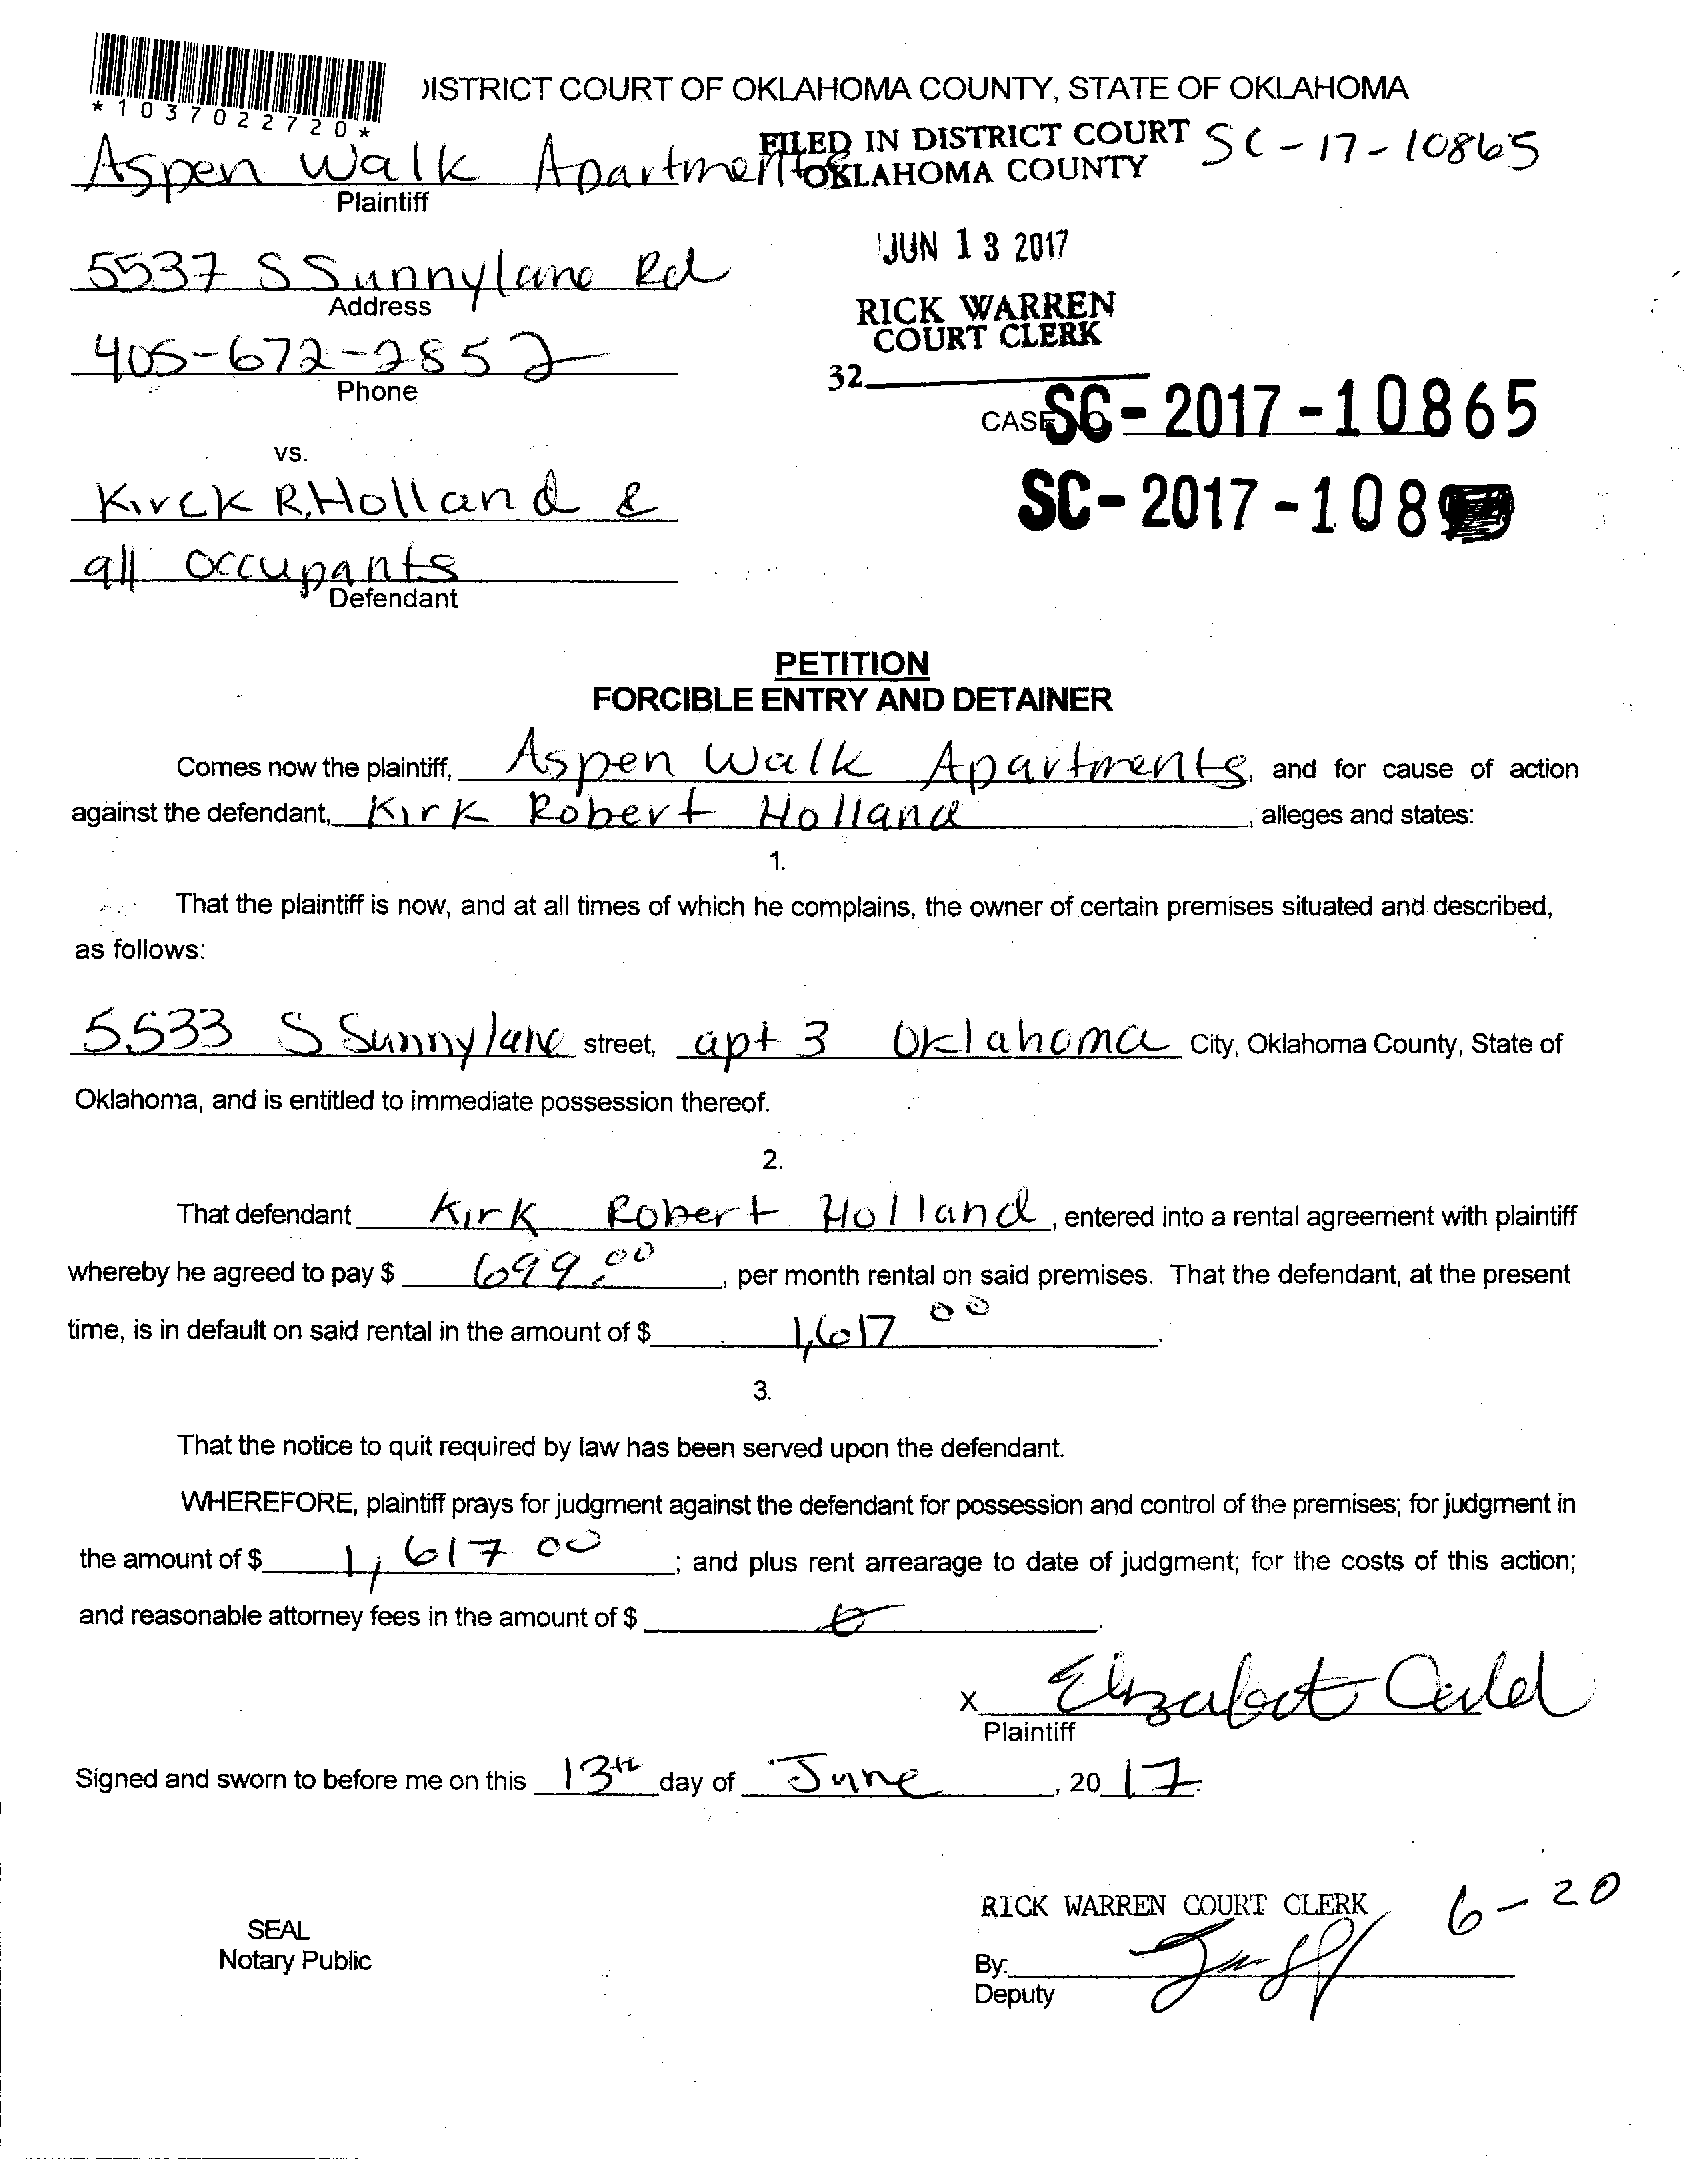 *1037022720*
DISTRICT COURT OF OKLAHOMA COUNTY, STATE OF OKLAHOMA
Aspen Walk Apartments
Plaintiff
FILED IN DISTRICT COURT
OKLAHOMA COUNTY
SC-17-10865
5537 S Sunnylane Rd
Address
JUN 13 2017
RICK WARREN
COURT CLERK
405-672-2852
Phone
32
CASE SC-2017-10865
vs.
SC-2017-108
Kirck R. Holland &
all occupants
Defendant
PETITION
FORCIBLE ENTRY AND DETAINER
Comes now the plaintiff, Aspen Walk Apartments, and for cause of action
against the defendant, Kirk Robert Holland, alleges and states:
1.
That the plaintiff is now, and at all times of which he complains, the owner of certain premises situated and described,
as follows:
5533 S Sunnylane street, apt 3 Oklahoma City, Oklahoma County, State of
Oklahoma, and is entitled to immediate possession thereof.
2.
That defendant Kirk Robert Holland, entered into a rental agreement with plaintiff
whereby he agreed to pay $ 699.00, per month rental on said premises. That the defendant, at the present
time, is in default on said rental in the amount of $ 1,617 00.
3.
That the notice to quit required by law has been served upon the defendant.
WHEREFORE, plaintiff prays for judgment against the defendant for possession and control of the premises; for judgment in
the amount of $ 1,617 00; and plus rent arrearage to date of judgment; for the costs of this action;
and reasonable attorney fees in the amount of $
x Elizabeth
Plaintiff
Signed and sworn to before me on this 13th day of June, 2017.
RICK WARREN COURT CLERK
6-20
SEAL
Notary Public
By:
Deputy